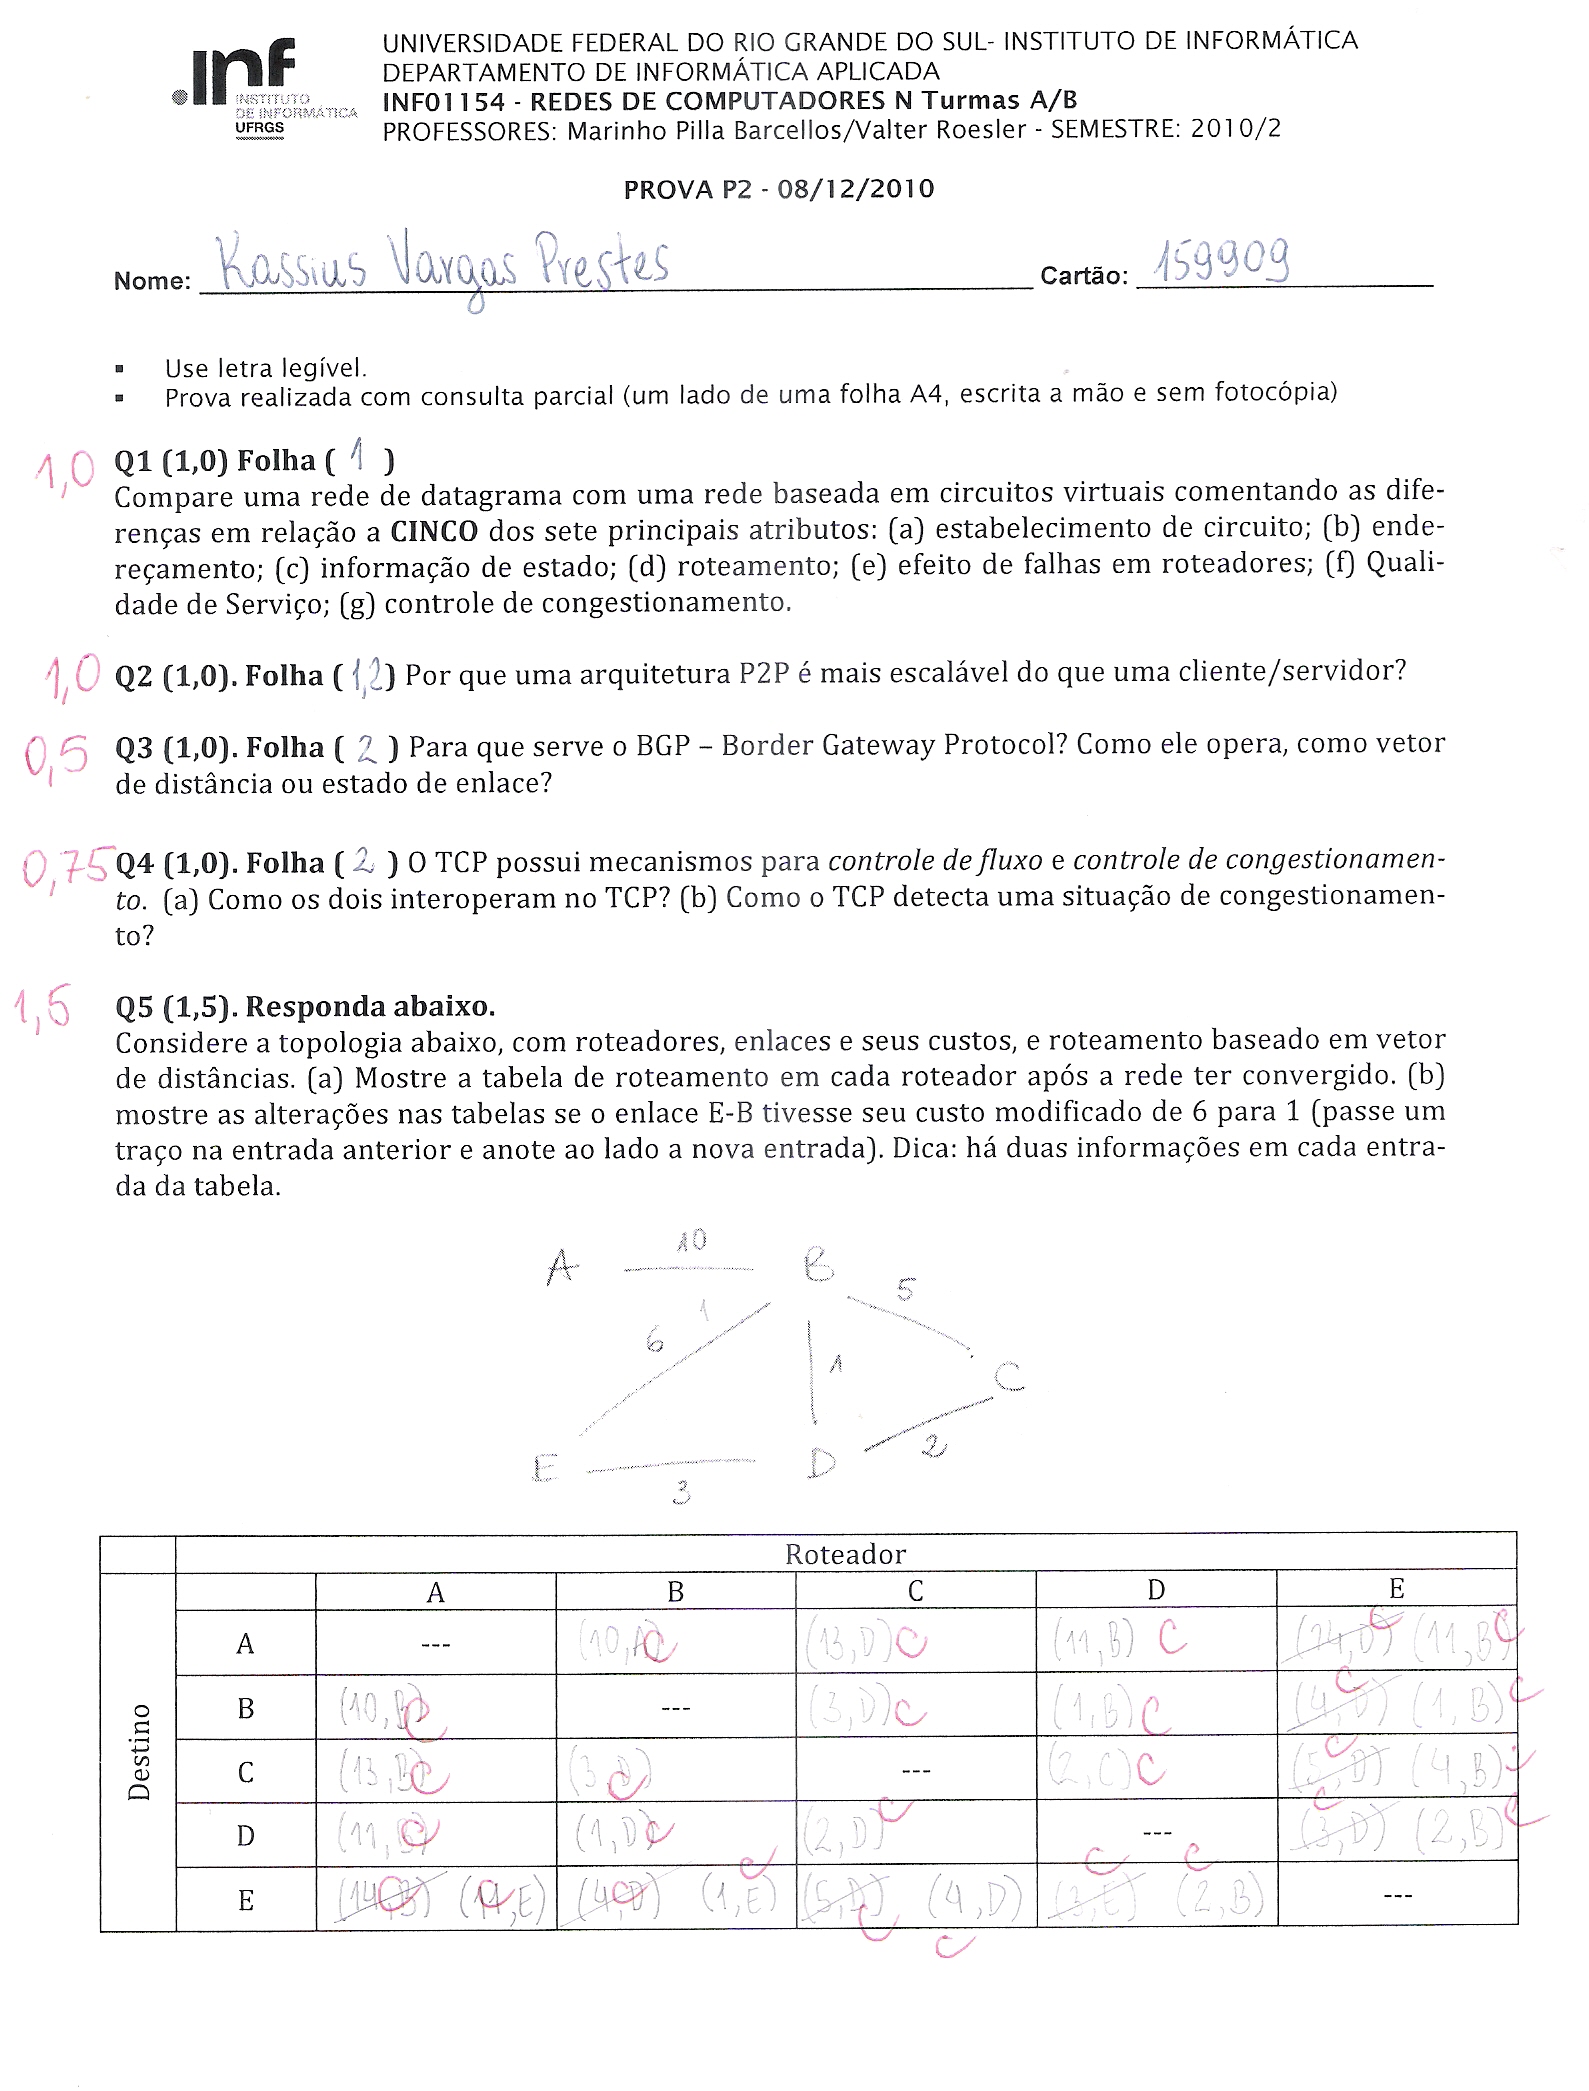 .inf
INSTITUTO
DE INFORMÁTICA
UFRGS
UNIVERSIDADE FEDERAL DO RIO GRANDE DO SUL- INSTITUTO DE INFORMÁTICA
DEPARTAMENTO DE INFORMÁTICA APLICADA
INF01154 - REDES DE COMPUTADORES N Turmas A/B
PROFESSORES: Marinho Pilla Barcellos/Valter Roesler - SEMESTRE: 2010/2
PROVA P2 - 08/12/2010
Nome: Kassius Vargas Prestes Cartão: 159909
▪ Use letra legível.
▪ Prova realizada com consulta parcial (um lado de uma folha A4, escrita a mão e sem fotocópia)
1,0 Q1 (1,0) Folha ( 1 )
Compare uma rede de datagrama com uma rede baseada em circuitos virtuais comentando as dife-
renças em relação a CINCO dos sete principais atributos: (a) estabelecimento de circuito; (b) ende-
reçamento; (c) informação de estado; (d) roteamento; (e) efeito de falhas em roteadores; (f) Quali-
dade de Serviço; (g) controle de congestionamento.
1,0 Q2 (1,0). Folha ( 1,2 ) Por que uma arquitetura P2P é mais escalável do que uma cliente/servidor?
0,5 Q3 (1,0). Folha ( 2 ) Para que serve o BGP – Border Gateway Protocol? Como ele opera, como vetor
de distância ou estado de enlace?
0,75 Q4 (1,0). Folha ( 2 ) O TCP possui mecanismos para controle de fluxo e controle de congestionamen-
to. (a) Como os dois interoperam no TCP? (b) Como o TCP detecta uma situação de congestionamen-
to?
1,5 Q5 (1,5). Responda abaixo.
Considere a topologia abaixo, com roteadores, enlaces e seus custos, e roteamento baseado em vetor
de distâncias. (a) Mostre a tabela de roteamento em cada roteador após a rede ter convergido. (b)
mostre as alterações nas tabelas se o enlace E-B tivesse seu custo modificado de 6 para 1 (passe um
traço na entrada anterior e anote ao lado a nova entrada). Dica: há duas informações em cada entra-
da da tabela.
10
A B
5
1
6
1
C
2
E D
3
Roteador
A B C D E
Destino
A --- (10,A) C (13,D) C (11,B) C (14,D) C (11,B) C
B (10,B) C --- (3,D) C (1,B) C (4,D) C (1,B) C
C (13,B) C (3,D) C --- (2,C) C (5,D) C (4,B) C
D (11,B) C (1,D) C (2,D) C --- (3,D) C (2,B) C
E (14,B) C (11,E) C (4,D) C (1,E) C (5,D) C (4,D) C (3,E) C (2,B) C ---